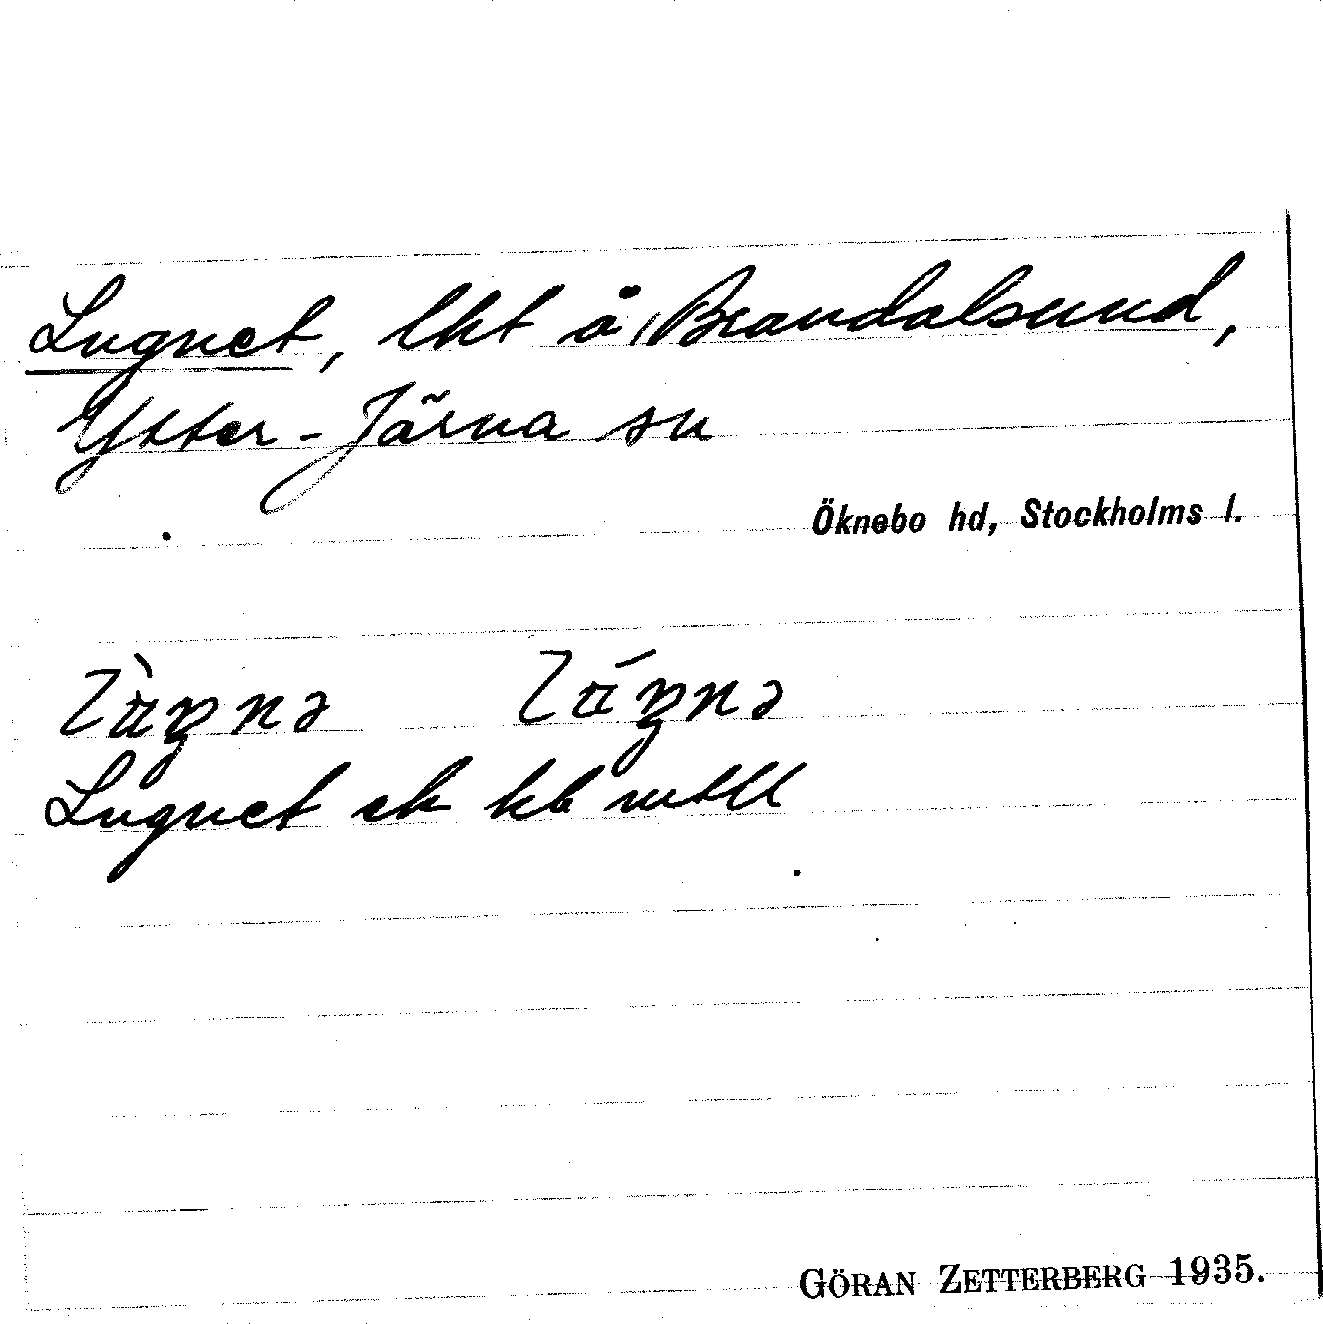 Lugnet, lht å Brandalsund,
Ytter-Järna sn
Öknebo hd, Stockholms l.
Lugnet ek kb mtll
GÖRAN ZETTERBERG 1935.